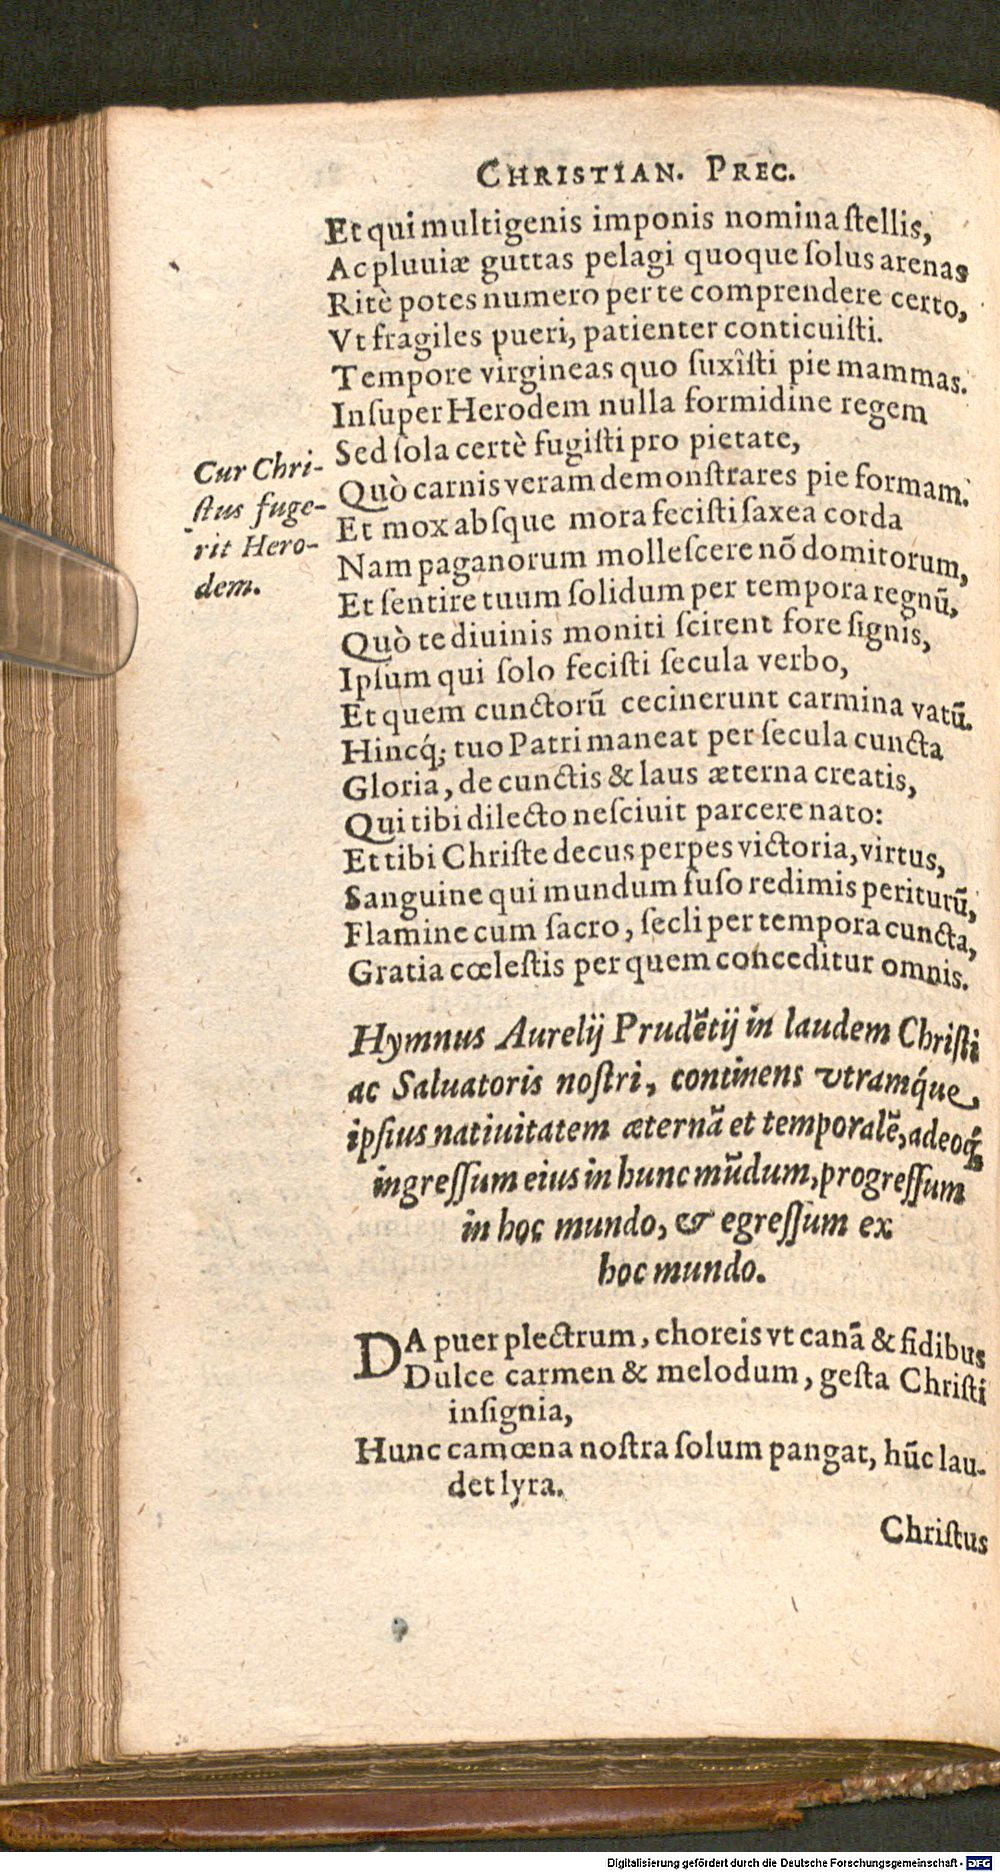 CHRISTIAN. PREC.
Et qui multigenis imponis nomina ſtellis,
Ac pluuiæ guttas pelagi quoque ſolus arenas
Ritè potes numero per te comprendere certo,
Vt fragiles pueri, patienter conticuiſti.
Tempore virgineas quo ſuxîſti pie mammas.
Inſuper Herodem nulla formidine regem
Sed ſola certè fugiſti pro pietate,
Quò carnis veram demonſtrares pie formam.
Et mox abſque mora feciſti ſaxea corda
Nam paganorum molleſcere nõ domitorum,
Et ſentire tuum ſolidum per tempora regnũ,
Quò te diuinis moniti ſcirent fore ſignis,
Ipſum qui ſolo feciſti ſecula verbo,
Et quem cunctorũ cecinerunt carmina vatũ.
Hincq́; tuo Patri maneat per ſecula cuncta
Gloria, de cunctis & laus æterna creatis,
Qui tibi dilecto neſciuit parcere nato:
Et tibi Chriſte decus perpes victoria, virtus,
Sanguine qui mundum fuſo redimis periturũ,
Flamine cum ſacro, ſecli per tempora cuncta,
Gratia cœleſtis per quem conceditur omnis.
Cur Chri-
ſtus fuge-
rit Hero-
dem.
Hymnus Aurelij Prudẽtij in laudem Chriſti
ac Saluatoris noſtri, continens vtramq́ue
ipſius natiuitatem æternã et temporalẽ, adeoq́;
ingreſſum eius in hunc mũdum, progreſſum
in hoc mundo, & egreſſum ex
hoc mundo.
DA puer plectrum, choreis vt canã & fidibus
Dulce carmen & melodum, geſta Chriſti
inſignia,
Hunc camœna noſtra ſolum pangat, hũc lau-
det lyra.
Chriſtus
Digitalisierung gefördert durch die Deutsche Forschungsgemeinschaft - DFG